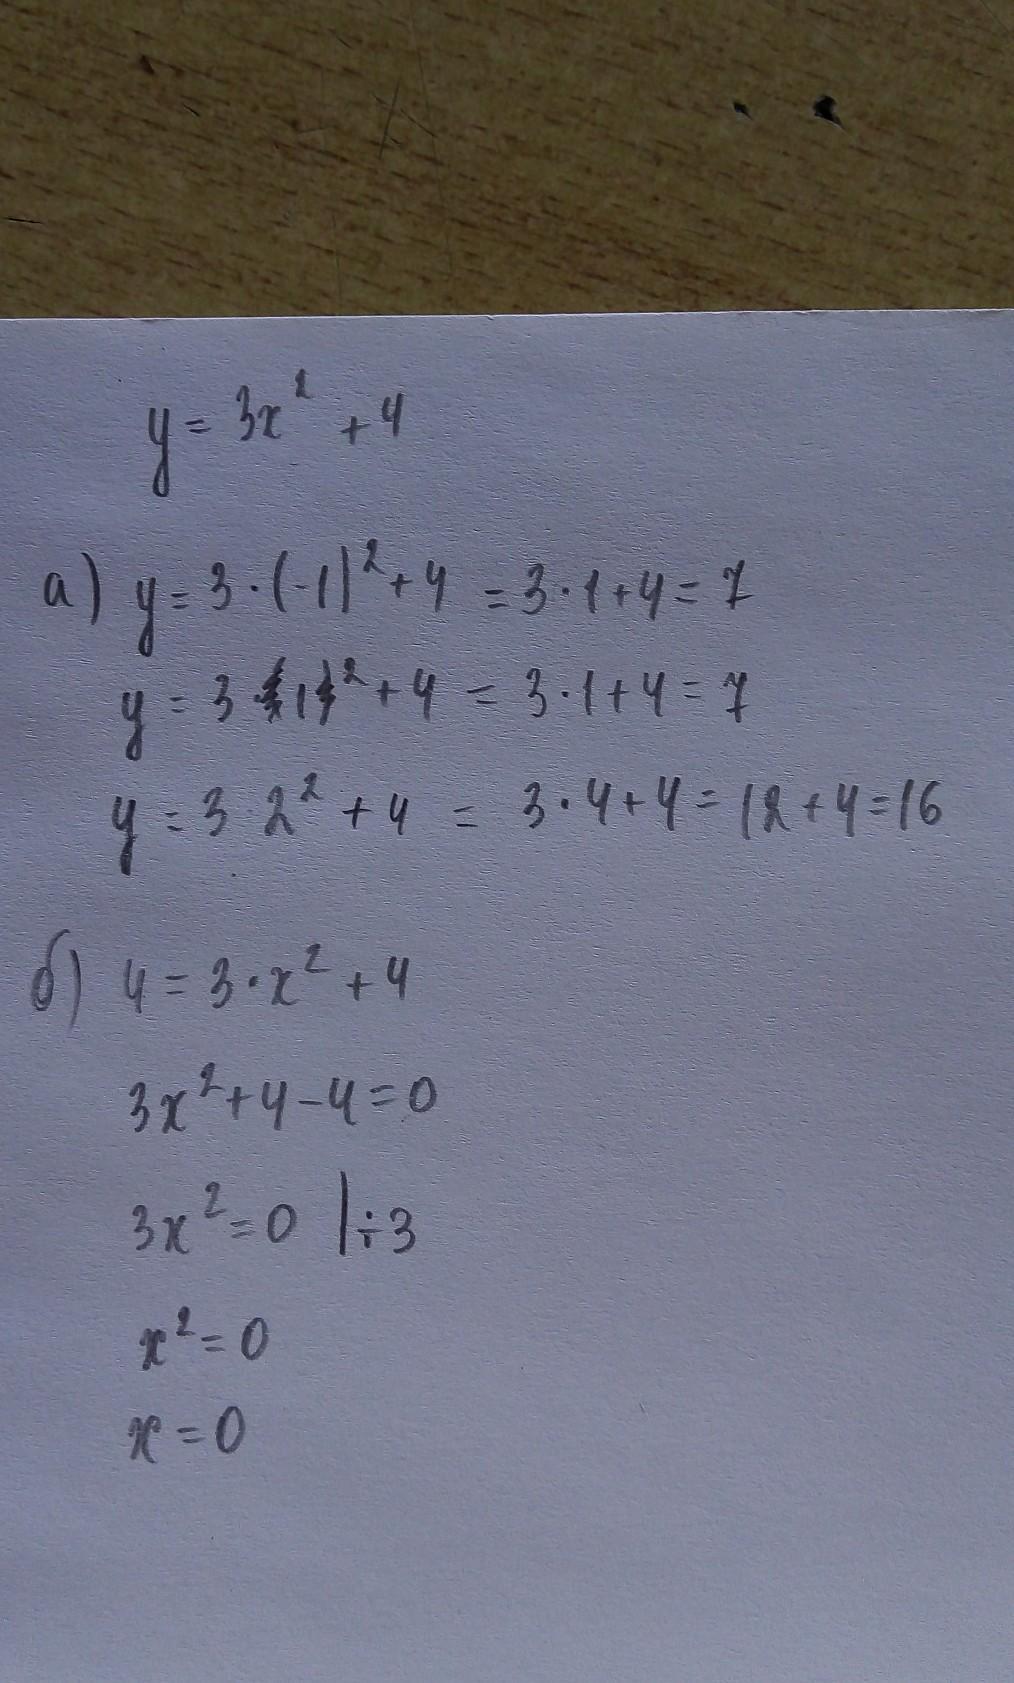 y = 3x² + 4
а) y = 3·(-1)² + 4 = 3·1 + 4 = 7
y = 3·1² + 4 = 3·1 + 4 = 7
y = 3·2² + 4 = 3·4 + 4 = 12 + 4 = 16
б) 4 = 3·x² + 4
3x² + 4 - 4 = 0
3x² = 0 |÷3
x² = 0
x = 0